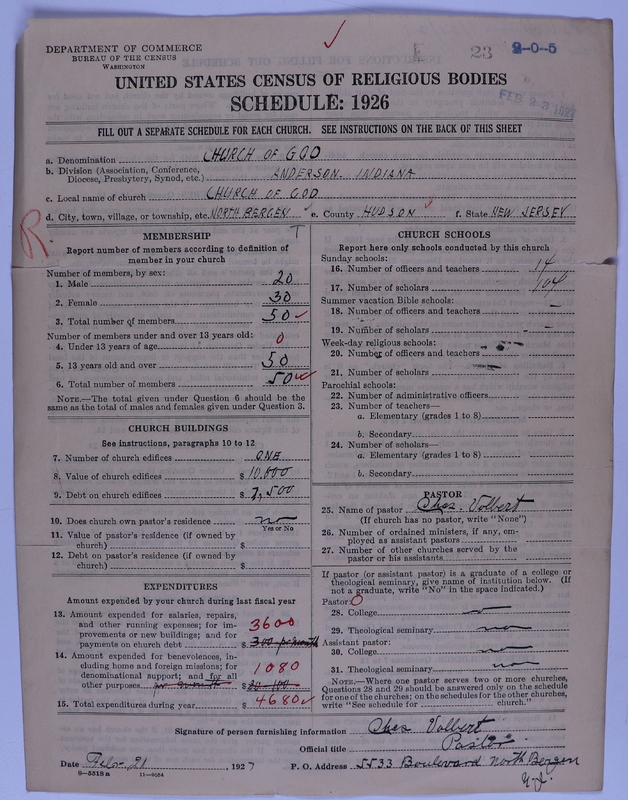 DEPARTMENT OF COMMERCE
BUREAU OF THE CENSUS
WASHINGTON
23
2-0-5
FEB 23 1927
UNITED STATES CENSUS OF RELIGIOUS BODIES
SCHEDULE: 1926
FILL OUT A SEPARATE SCHEDULE FOR EACH CHURCH. SEE INSTRUCTIONS ON THE BACK OF THIS SHEET
a. Denomination CHURCH OF GOD
b. Division (Association, Conference, Diocese, Presbytery, Synod, etc.) ANDERSON. INDIANA
c. Local name of church CHURCH OF GOD
d. City, town, village, or township, etc. NORTH BERGEN e. County HUDSON f. State NEW JERSEY
R.
MEMBERSHIP
Report number of members according to definition of
member in your church
Number of members, by sex:
1. Male 20
2. Female 30
3. Total number of members 50
Number of members under and over 13 years old:
4. Under 13 years of age 0
5. 13 years old and over 50
6. Total number of members 50
NOTE.—The total given under Question 6 should be
same as the total of males and females given under Question 3.
CHURCH BUILDINGS
See instructions, paragraphs 10 to 12
7. Number of church edifices ONE
8. Value of church edifices $ 10,000
9. Debt on church edifices $ 7,500
10. Does church own pastor's residence no
Yes or No
11. Value of pastor's residence (if owned by
church) $
12. Debt on pastor's residence (if owned by
church) $
EXPENDITURES
Amount expended by your church during last fiscal year
13. Amount expended for salaries, repairs,
and other running expenses; for im-
provements or new buildings; and for
payments on church debt $ 300 per month
3600
14. Amount expended for benevolences, in-
cluding home and foreign missions; for
denominational support; and for all
other purposes $
1080
15. Total expenditures during year $ 4680
CHURCH SCHOOLS
Report here only schools conducted by this church
Sunday schools:
16. Number of officers and teachers 14
17. Number of scholars 104
Summer vacation Bible schools:
18. Number of officers and teachers –
19. Number of scholars –
Week-day religious schools:
20. Number of officers and teachers
21. Number of scholars
Parochial schools:
22. Number of administrative officers
23. Number of teachers—
a. Elementary (grades 1 to 8)
b. Secondary
24. Number of scholars—
a. Elementary (grades 1 to 8)
b. Secondary
PASTOR
25. Name of pastor Chas. Volbert
(If church has no pastor, write "None")
26. Number of ordained ministers, if any, em-
ployed as assistant pastors
27. Number of other churches served by the
pastor or his assistants
If pastor (or assistant pastor) is a graduate of a college or
theological seminary, give name of institution below. (If
not a graduate, write "No" in the space indicated.)
Pastor: O
28. College no
29. Theological seminary no
Assistant pastor:
30. College no
31. Theological seminary no
NOTE.—Where one pastor serves two or more churches,
Questions 28 and 29 should be answered only on the schedule
for one of the churches; on the schedules for the other churches,
write "See schedule for church."
Signature of person furnishing information Chas Volbert
Official title Pastor
Date Feb. 21, 1927 P. O. Address 5533 Boulevard North Bergen
N.J.
8—5518 a 11—9054